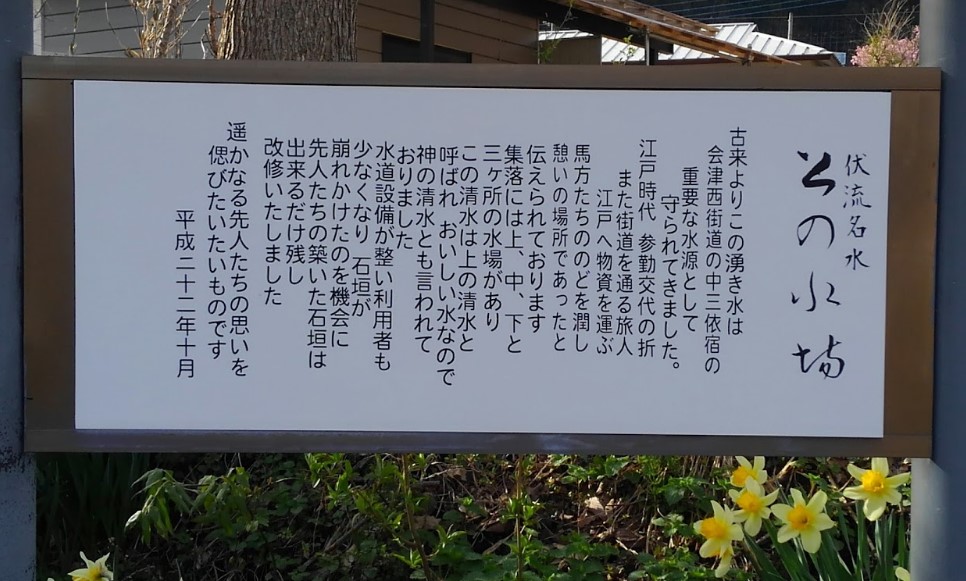 伏流名水
上の水場
古来よりこの湧き水は
会津西街道の中三依宿の
重要な水源として
守られてきました。
江戸時代 参勤交代の折
また街道を通る旅人
江戸へ物資を運ぶ
馬方たちののどを潤し
憩いの場所であったと
伝えられております
集落には上、中、下と
三ヶ所の水場があり
この清水は上の清水と
呼ばれ おいしい水なので
神の清水とも言われて
おりました
水道設備が整い利用者も
少なくなり 石垣が
崩れかけたのを機会に
先人たちの築いた石垣は
出来るだけ残し
改修いたしました
遥かなる先人たちの思いを
偲びたいたいものです
平成二十二年十月